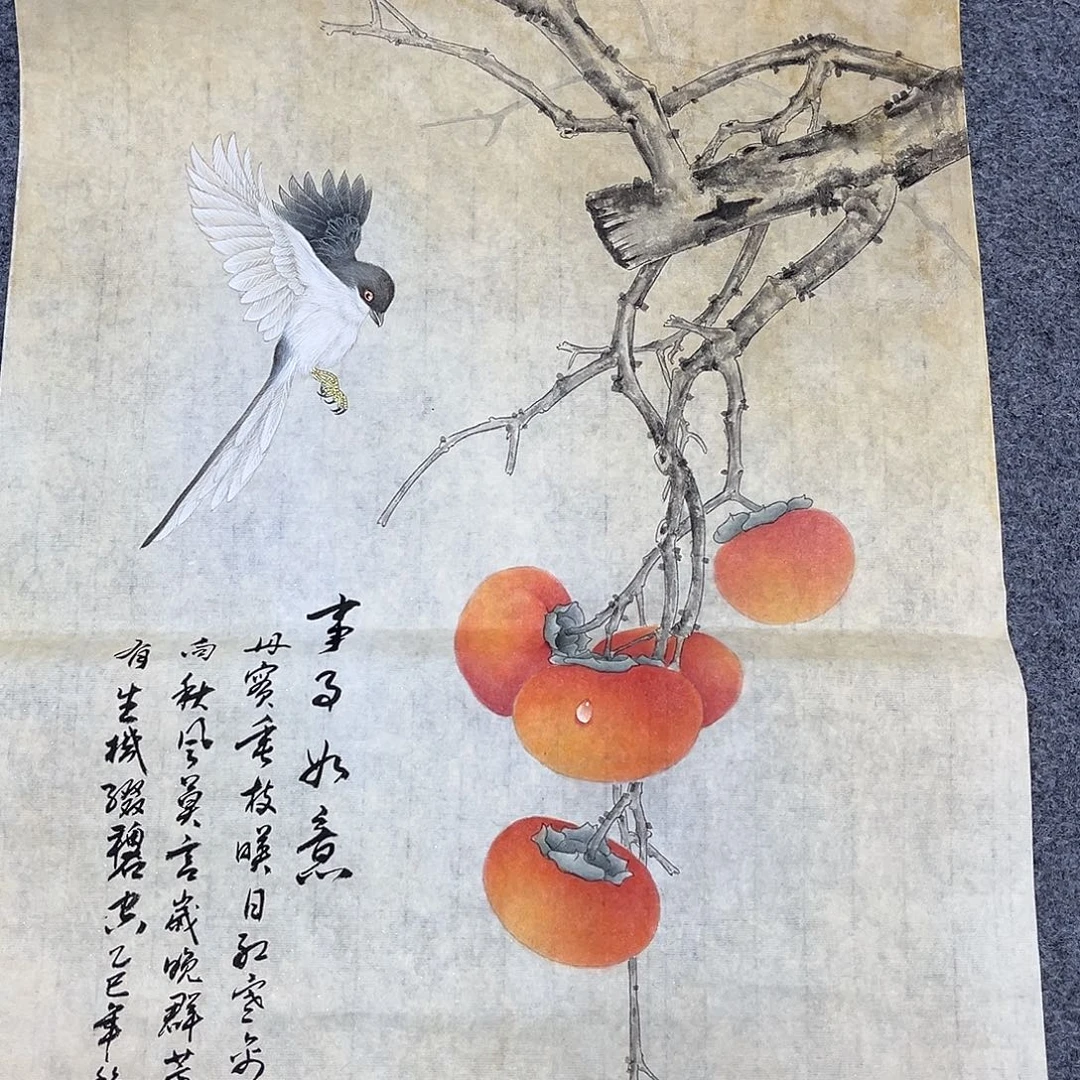 事事如意
丹實垂枝暎日紅寒禽
向秋風莫言歲晚群芳
有生機綴碧空乙巳年